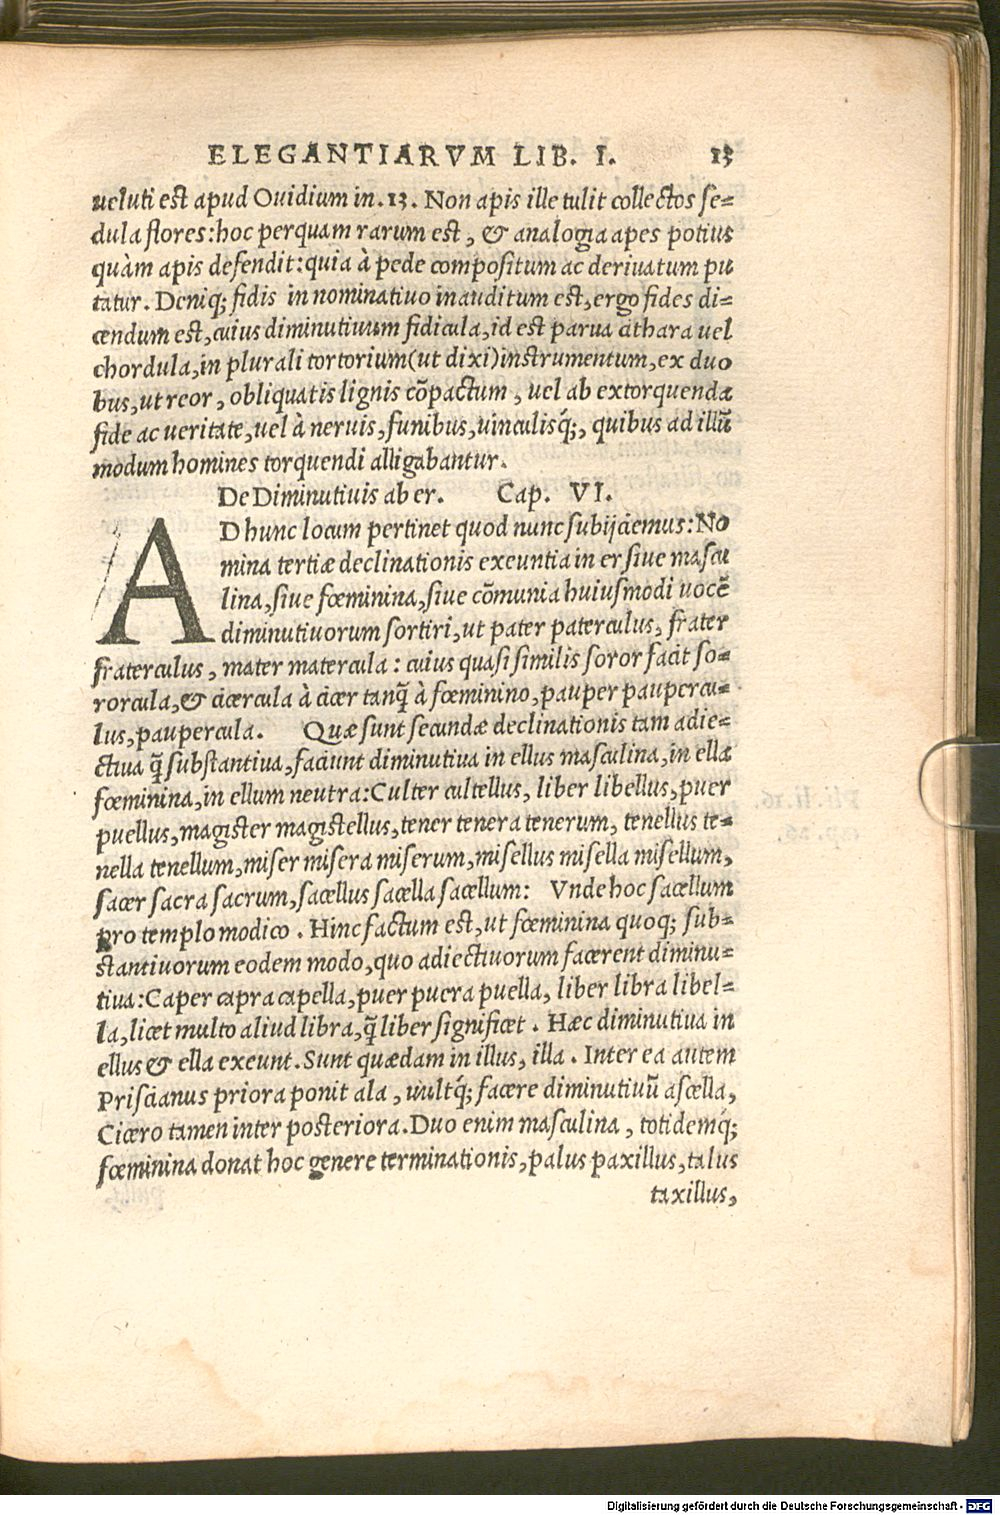 ELEGANTIARVM LIB. I. 13
ueluti est apud Ouidium in .13. Non apis ille tulit collectos se=
dula flores: hoc perquam rarum est, & analogia apes potius
quàm apis defendit: quia à pede compositum ac deriuatum pu
tatur. Deniq; fidis in nominatiuo inauditum est, ergo fides di=
cendum est, cuius diminutiuum fidicula, id est parua cithara uel
chordula, in plurali tortorium (ut dixi) instrumentum, ex duo
bus, ut reor, obliquatis lignis cõpactum, uel ab extorquenda
fide ac ueritate, uel à neruis, funibus, uinculisq́;, quibus ad illũ
modum homines torquendi alligabantur.
De Diminutiuis ab er. Cap. VI.
AD hunc locum pertinet quod nunc subijciemus: No
mina tertiæ declinationis exeuntia in er siue mascu
lina, siue fœminina, siue cõmunia huiusmodi uocẽ
diminutiuorum sortiri, ut pater paterculus, frater
fraterculus, mater matercula: cuius quasi similis soror facit so=
rorcula, & cicercula à cicer tanq̃ à fœminino, pauper paupercu=
lus, paupercula. Quæ sunt secundæ declinationis tam adie=
ctiua q̃ substantiua, faciunt diminutiua in ellus masculina, in ella
fœminina, in ellum neutra: Culter cultellus, liber libellus, puer
puellus, magister magistellus, tener tenera tenerum, tenellus te=
nella tenellum, miser misera miserum, misellus misella misellum,
sacer sacra sacrum, sacellus sacella sacellum: Vnde hoc sacellum
pro templo modico. Hinc factum est, ut fœminina quoq; sub=
stantiuorum eodem modo, quo adiectiuorum facerent diminu=
tiua: Caper capra capella, puer puera puella, liber libra libel=
la, licet multo aliud libra, q̃ liber significet. Hæc diminutiua in
ellus & ella exeunt. Sunt quædam in illus, illa. Inter ea autem
Priscianus priora ponit ala, uultq́; facere diminutiuũ ascella,
Cicero tamen inter posteriora. Duo enim masculina, totidemq́;
fœminina donat hoc genere terminationis, palus paxillus, talus
taxillus,
Digitalisierung gefördert durch die Deutsche Forschungsgemeinschaft - DFG